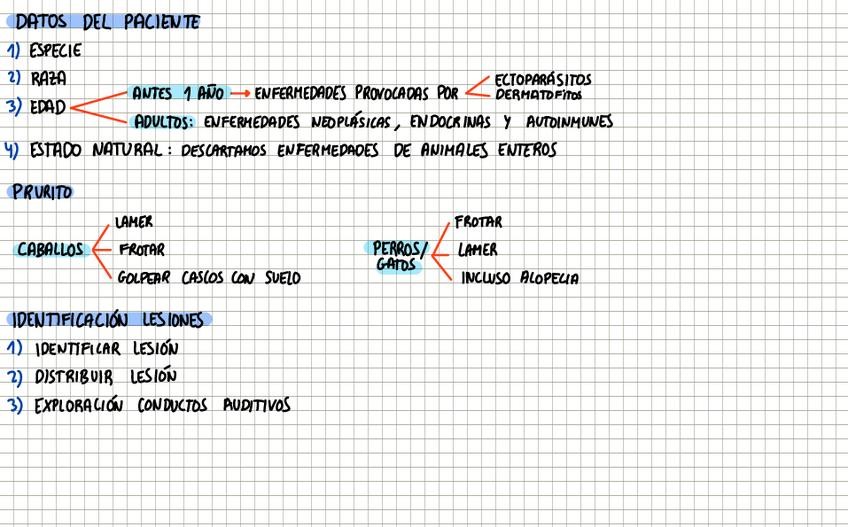 DATOS DEL PACIENTE
1) ESPECIE
2) RAZA
3) EDAD
ANTES 1 AÑO → ENFERMEDADES PROVOCADAS POR
ECTOPARÁSITOS
DERMATOFITOS
ADULTOS: ENFERMEDADES NEOPLÁSICAS, ENDOCRINAS Y AUTOINMUNES
4) ESTADO NATURAL: DESCARTAMOS ENFERMEDADES DE ANIMALES ENTEROS
PRURITO
CABALLOS
LAMER
FROTAR
GOLPEAR CASCOS CON SUELO
PERROS/
GATOS
FROTAR
LAMER
INCLUSO ALOPECIA
IDENTIFICACIÓN LESIONES
1) IDENTIFICAR LESIÓN
2) DISTRIBUIR LESIÓN
3) EXPLORACIÓN CONDUCTOS AUDITIVOS